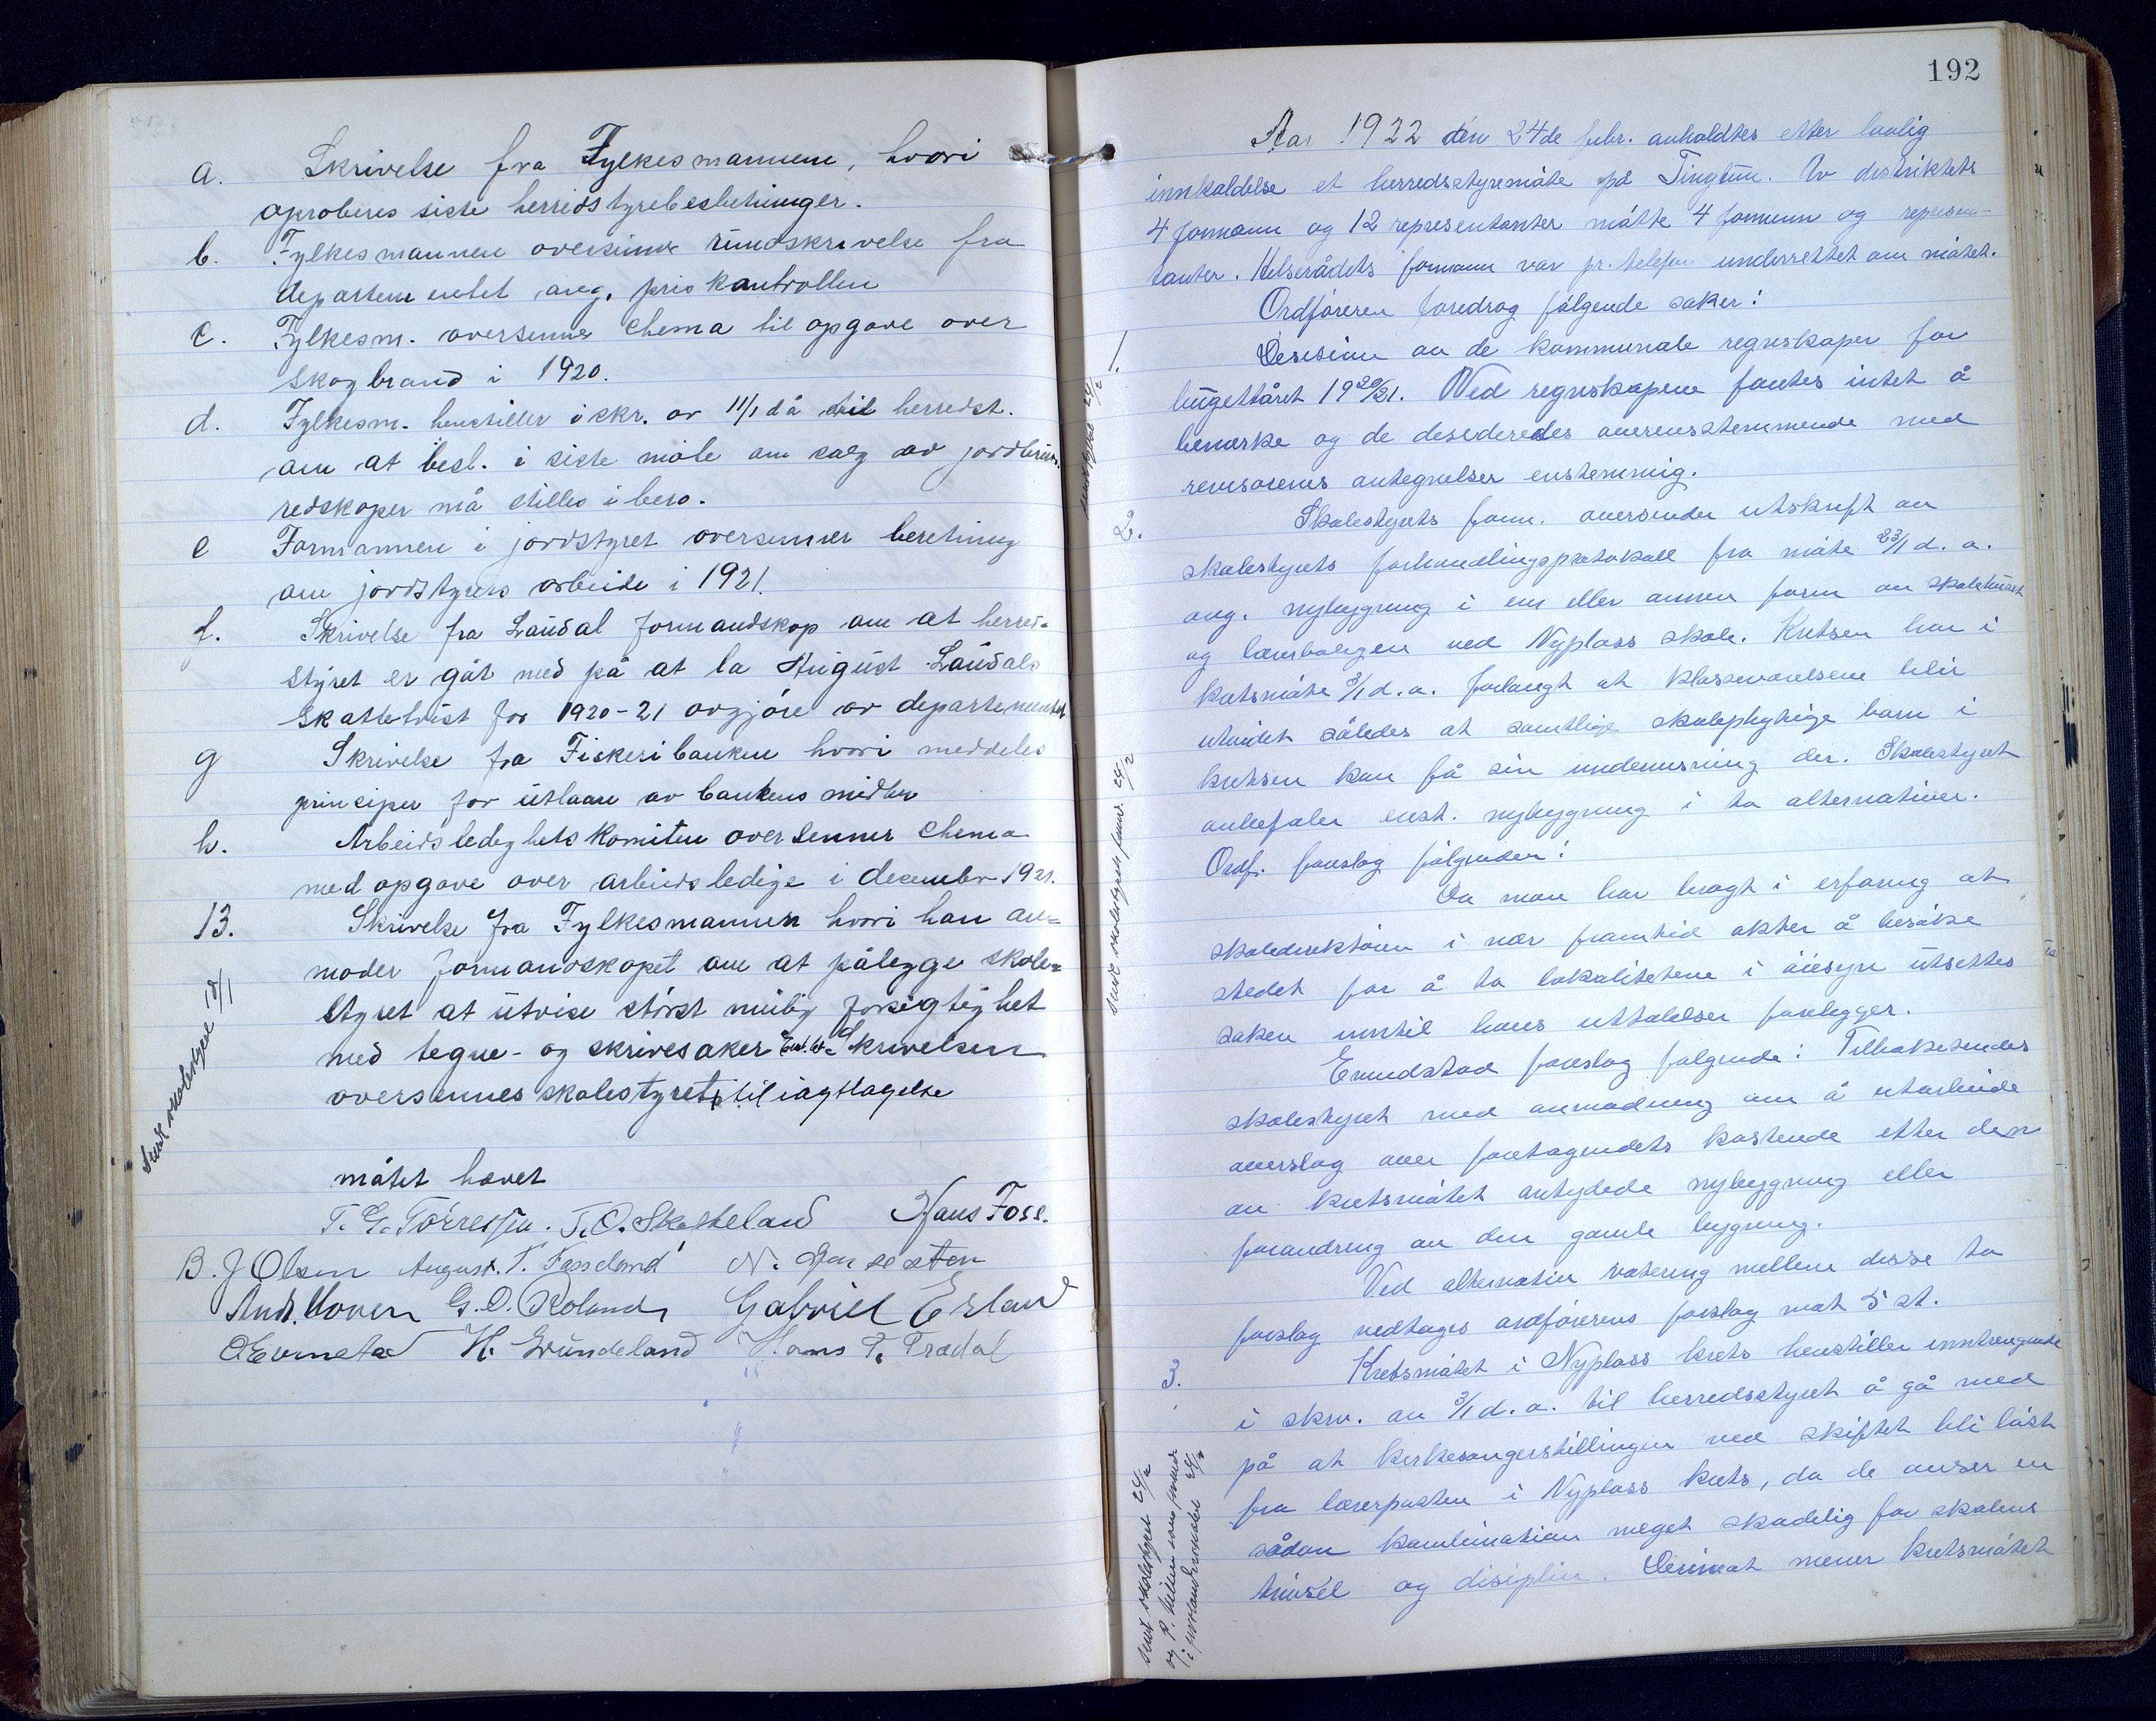 a. Skrivelse fra Fylkesmannen, hvori
aproberes siste herredstyrebeslutninger.
b. Fylkesmannen oversenner rundskrivelse fra
departementet ang. priskontrollen
c. Fylkesm. oversenner Chema til opgave over
skogbrand i 1920.
d. Fylkesm. henstiller i skr. av 11/1 då til herredst.
om at besl. i siste møte om salg av jordbruks-
redskaper må stilles i bero.
e Formannen i jordstyret oversenner beretning
om jordstyrets arbeide i 1921.
f. Skrivelse fra Laudal formandskap om at herred-
styret er gåt med på at la August Laudals
skattetvist for 1920-21 avgjøre av departementet
g Skrivelse fra Fiskeribanken hvori meddeles
prinsiper for utlaan av bankens midler
h. Arbeidsledighetskomiteen oversenner Chema
med opgave over arbeidsledige i december 1921.
13. Skrivelse fra Fylkesmannen hvori han an-
moder formandskapet om at pålegge skole-
styret at utvise størst mulig forsigtighet
med tegne- og skrivesaker Skrivelsen
oversennes skolestyret til iagttagelse
Sendt skolestyret 18/1
møtet hævet
T. G. Tørressen. T. O. Skatteland Hans Foss.
B. J Olsen August. T. Fasseland N.
And. Hoven G. O. Roland Gabriel Erland
O Evensta H. Grundeland Hans T. Trædal
192
Aar 1922 den 24de febr. avholdtes etter lovlig
innkaldelse et herredsstyremøte på Tingtun. Av distriktets
4 formænn og 12 representanter møtte 4 formenn og represen-
tanter. Helserådets formann var pr. telefon underrettet om møtet.
Ordføreren foredrog følgende saker:
1. Desision av de kommunale regnskaper for
bugettåret 1920/21. Ved regnskapene fantes intet å
bemerke og de desideredes overensstemmende med
revisorenes antegnelser enstemmig.
2. Skolestyrets form. oversender utskrift av
skolestyrets forhandlingsprotokoll fra møte 23/1 d. a.
ang. nybygning i en eller annen form av skolehuset
og lærerboligen ved Nyplass skole. Kretsen har i
kretsmøte 3/1 d. a. forlangt at klasseværelsene blir
utvidet således at samtlige skolepligtige barn i
kretsen kan få sin undervisning der. Skolestyret
anbefaler enst. nybygning i to alternativer.
Ordf. foreslog følgende:
Da man har bragt i erfaring at
skoledirektøren i nær framtid akter å besøke
stedet for å ta lokalitetene i øiesyn utsettes
saken inntil hans uttalelser foreligger.
Evendstad foreslog følgende: Tilbakesendes
skolestyret med anmodning om å utarbeide
overslag over foretagendets kostende etter den
av kretsmøtet antydede nybygning eller
forandring av den gamle bygning.
Ved alternativ votering mellem disse to
forslag vedtages ordførerens forslag mot 5 st.
3. Kretsmøtet i Nyplass krets henstiller inntrengende
i skriv. av 3/1 d. a. til herredsstyret å gå med
på at kirkesangerstillingen ved skiftet bli løst
fra lærerposten i Nyplass krets, da de anser en
sådan kombination meget skadelig for skolens
trivsel og disiplin. Derimot mener kretsmøtet
sendt skolestyrets form. 24/2
sendt skolestyret 24/2